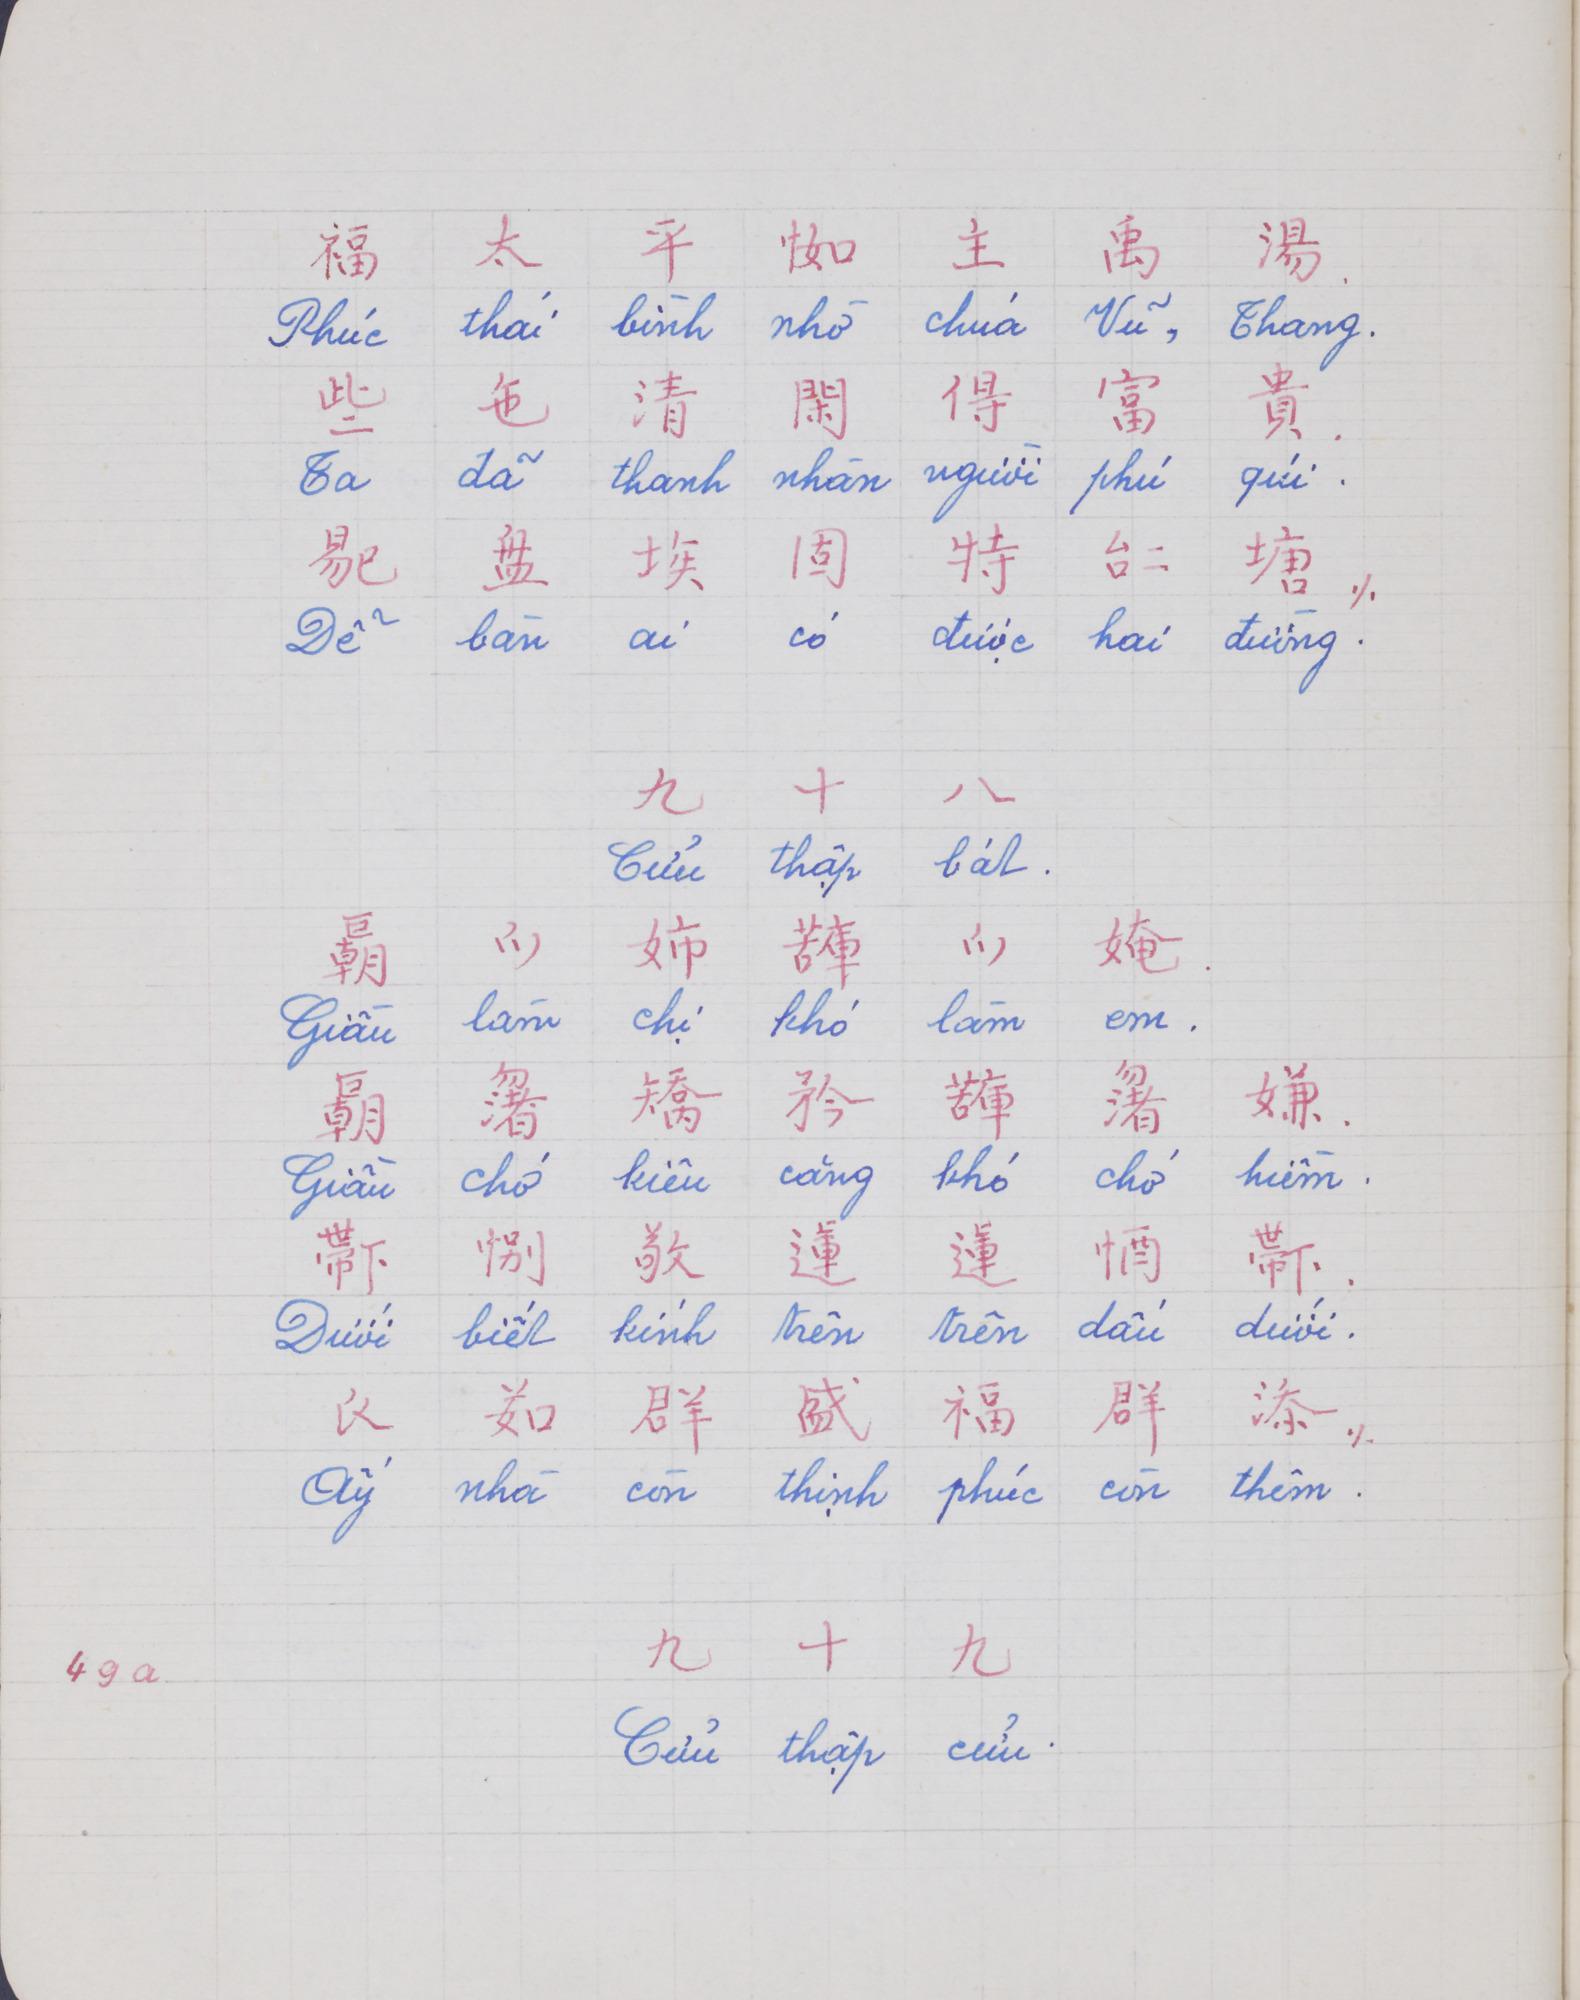 福 太 平 怮 主 禹 湯.
Phúc thái bình nhờ chúa Vũ, Thang.
些 㐌 清 閑 得 富 貴.
Ta đã thanh nhàn người phú quí.
易 盘 埃 固 特 𠄩 塘 ٪
Dễ bàn ai có được hai đường.
九 十 八
Cửu thập bát.
𠃅 姉 𠃅 媕.
Giầu làm chị khó làm em.
矯 矜 嫌.
Giầu chớ kiêu căng khó chớ hiềm.
敬 蓮 蓮 
Dưới biết kính trên trên dấu dưới.
茹 群 盛 福 群 添 ٪
Ấy nhà còn thịnh phúc còn thêm.
49a
九 十 九
Cửu thập cửu.